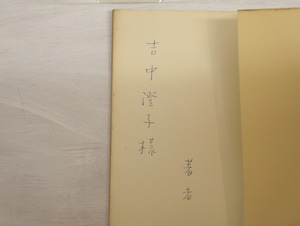 吉中澄子様
著者